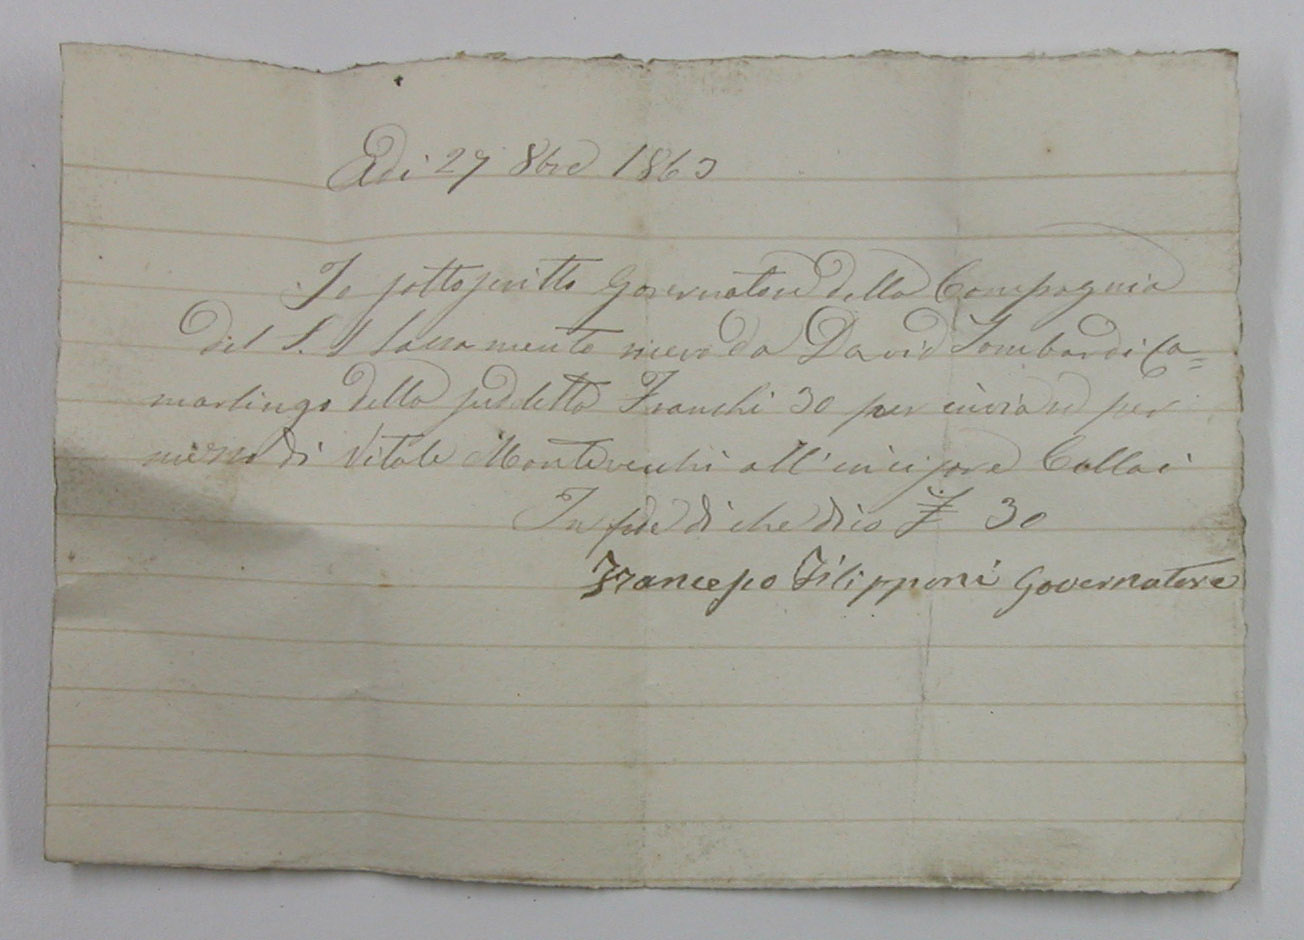 Adi 27 8bre 1863
Io sottoscritto Governatore della Compagnia
del S. S Sacramento ricevo da David Lombardi Ca=
marlingo della suddetta Franchi 30 per inviare per
mezzo di Vitale Montevecchi all'incisore Collai
In fede di che dico £ 30
Francesco Filipponi Governatore